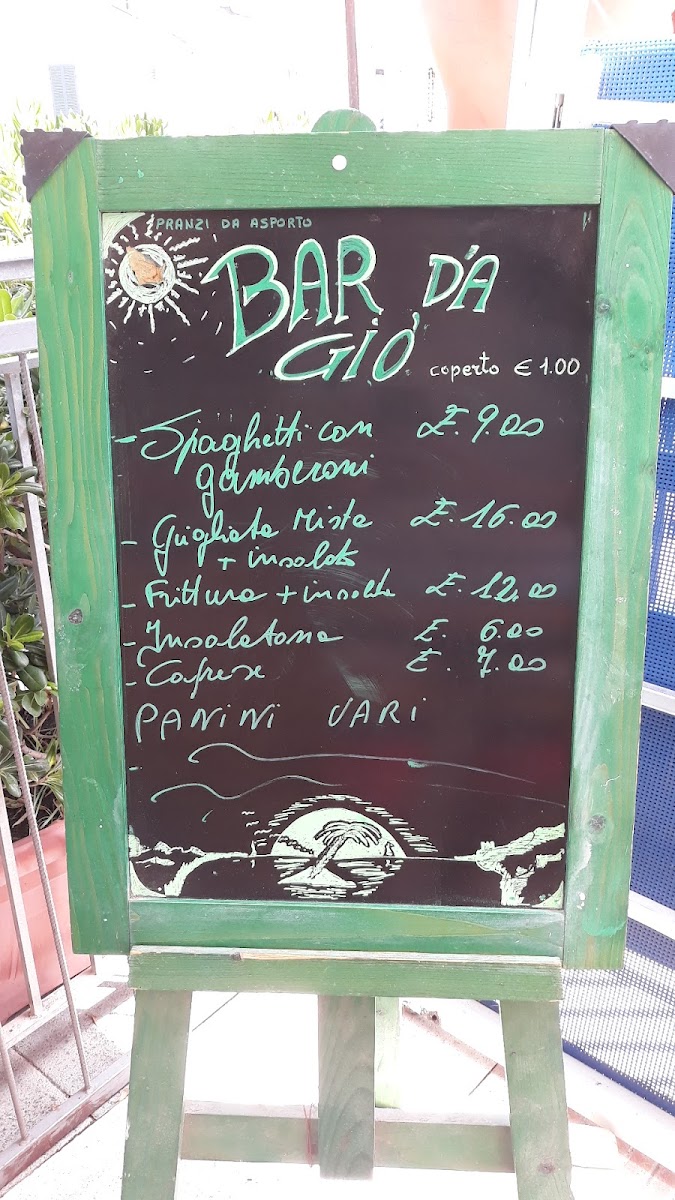 PRANZI DA ASPORTO
BAR DA'
GIÒ
coperto € 1.00
- Spaghetti con £. 9.00
gamberoni
- Grigliata Mista £. 16.00
+ insalata
- Frittura + insalata £. 12.00
- Insalatona £. 6.00
- Caprese £. 7.00
PANINI VARI
-